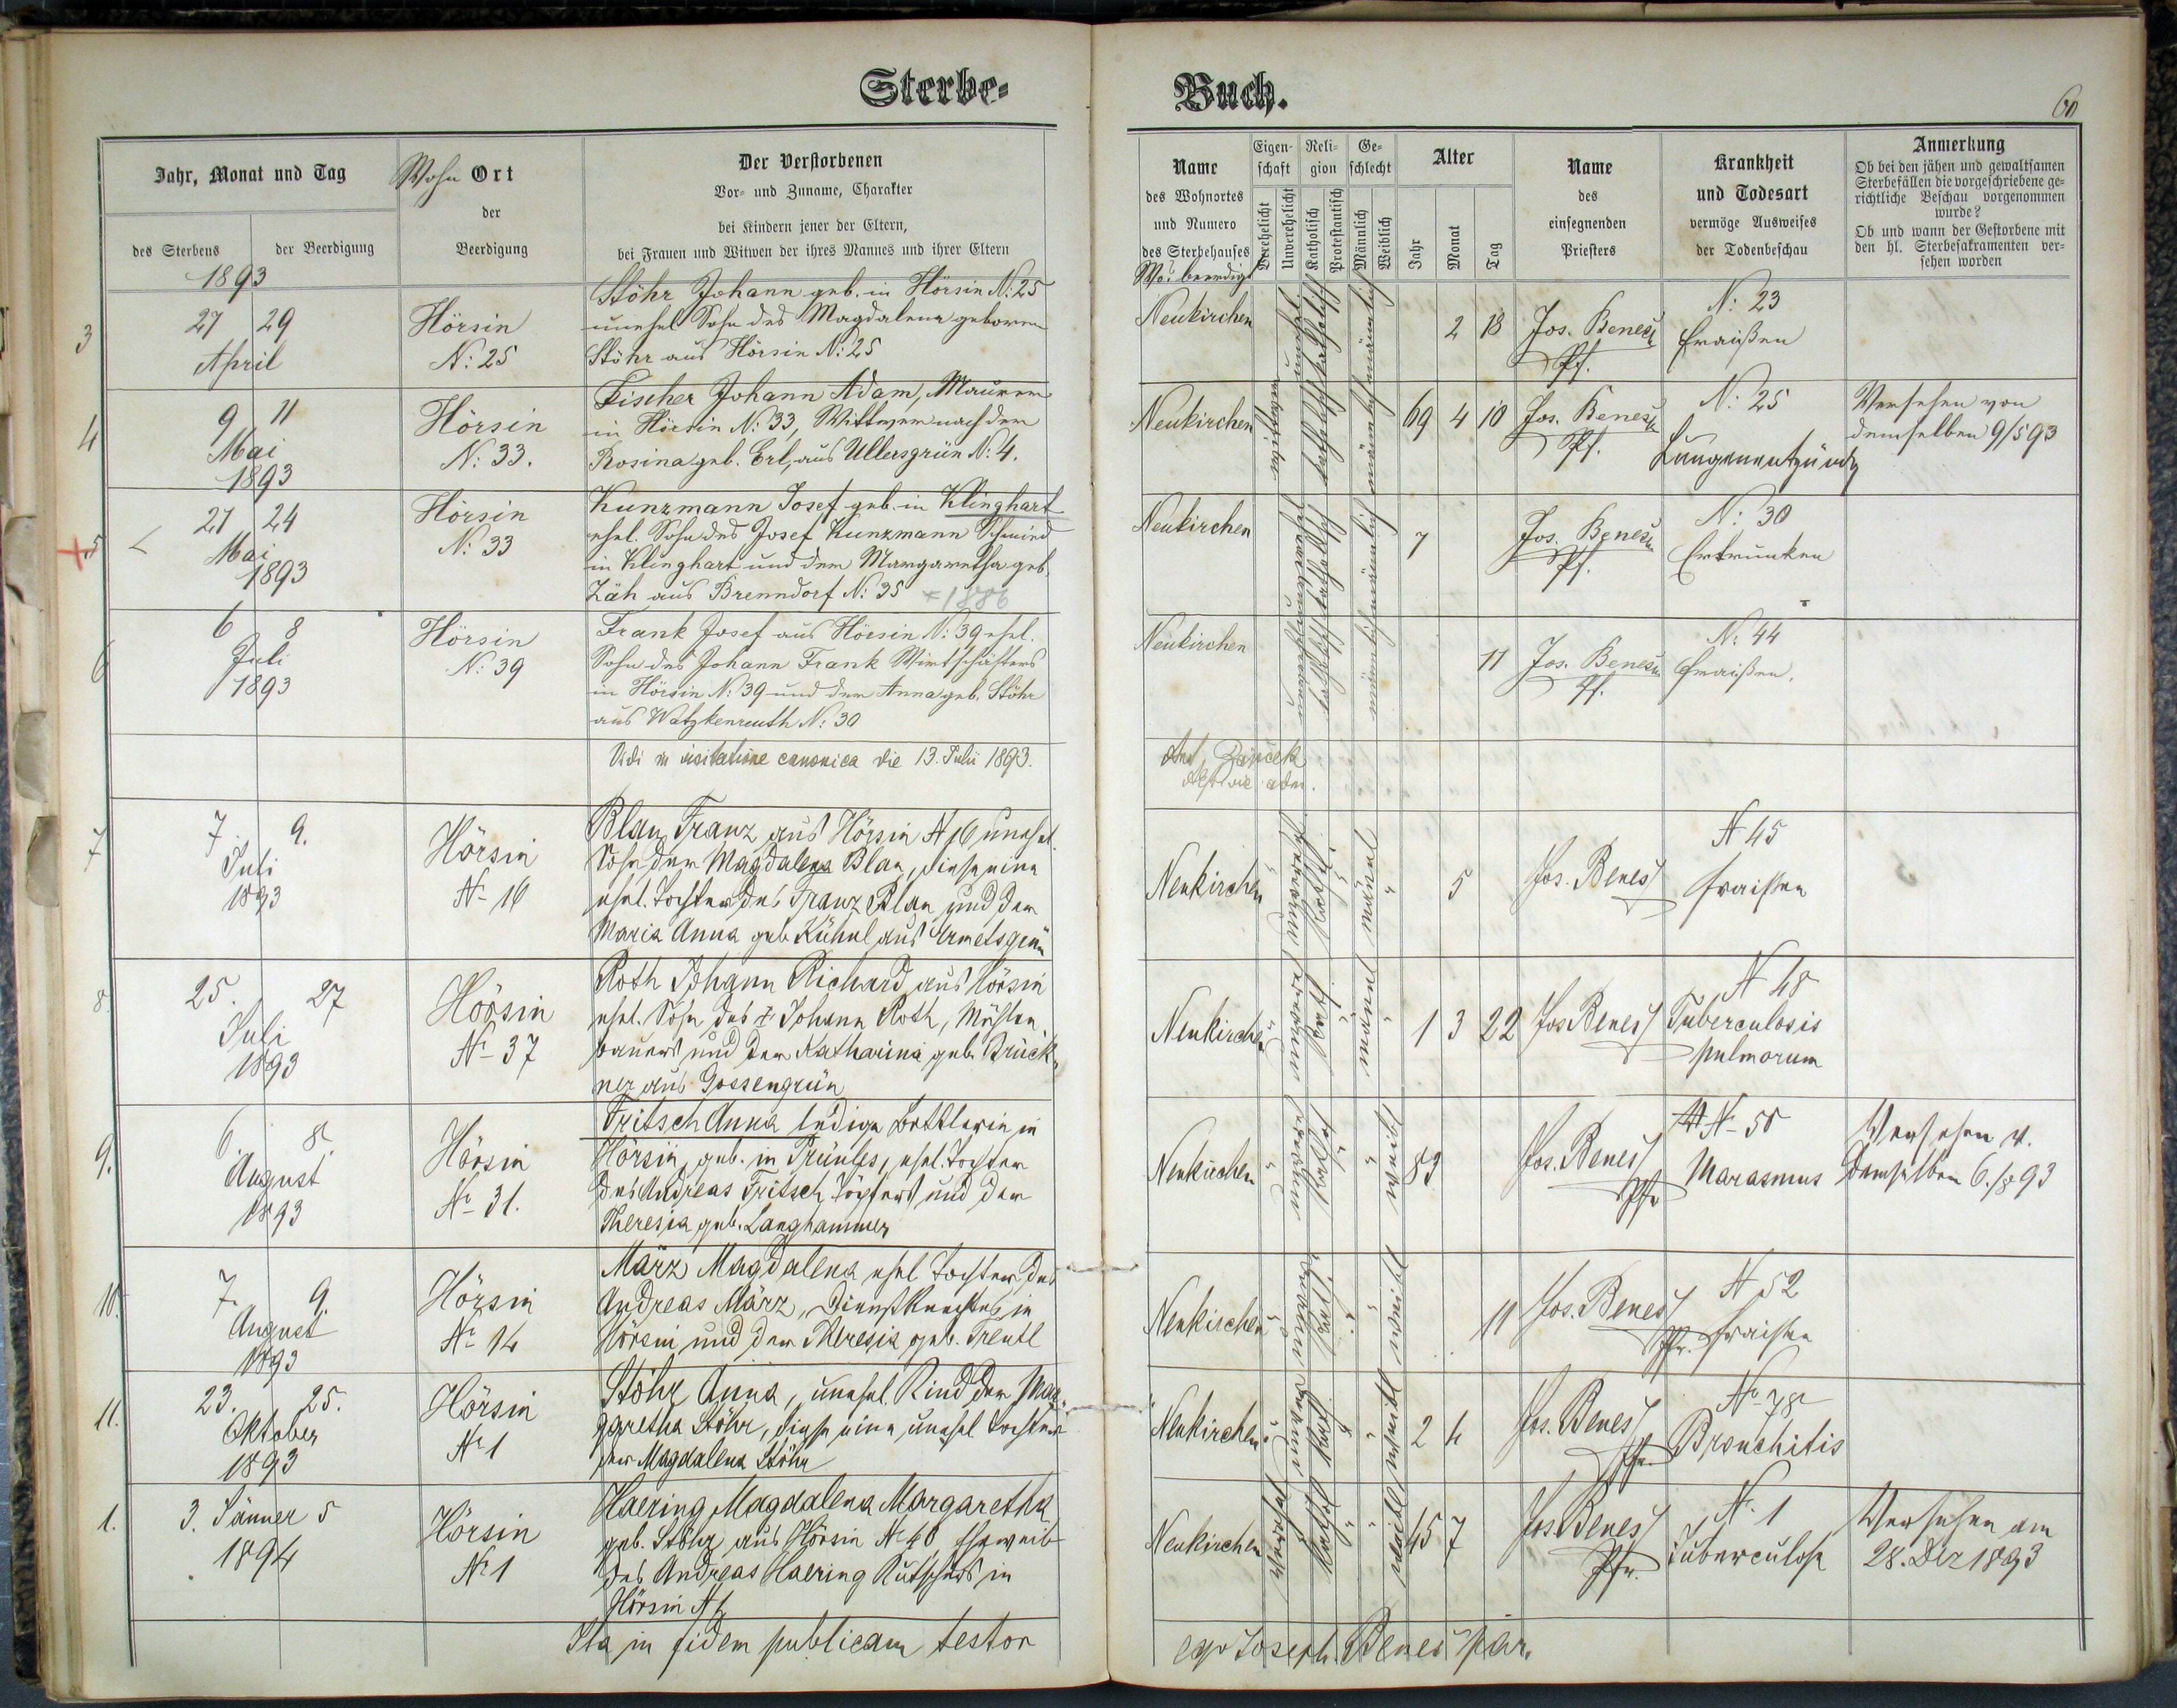 Sterbe-
Buch.
60
Jahr, Monat und Tag
des Sterbens
der Beerdigung
Wohn Ort
der
Beerdigung
Der Verstorbenen
Vor- und Zuname, Charakter
bei Kindern jener der Eltern,
bei Frauen und Witwen der ihres Mannes und ihrer Eltern
Name
des Wohnortes
und Numero
des Sterbehauses
Wo? beerdigt
Eigen-
schaft
Verehelicht
Unverehelicht
Reli-
gion
Katholisch
Protestantisch
Ge-
schlecht
Männlich
Weiblich
Alter
Jahr
Monat
Tag
Name
des
einsegnenden
Priesters
Krankheit
und Todesart
vermöge Ausweises
der Todenbeschau
Anmerkung
Ob bei den jähen und gewaltsamen
Sterbefällen die vorgeschriebene ge-
richtliche Beschau vorgenommen
wurde?
Ob und wann der Gestorbene mit
den hl. Sterbesakramenten ver-
sehen worden
1893
3
27 29
April
Hörsin
N: 25
Stöhr Johann geb. in Hörsin N: 25
unehel Sohn des Magdalena geboren
Stöhr aus Hörsin N: 25
Neukirchen
unehel
katholisch
männlich
2 18
Jos. Beneš
Pf.
N: 23
Fraißen
4
9 11
Mai
1893
Hörsin
N: 33.
Fischer Johann Adam, Maurer
in Hörsin N: 33, Wittwer nach der
Rosina geb. Erl, aus Ullersgrün N: 4.
Neukirchen
wittwer
katholisch
männlich
69 4 10
Jos. Beneš
Pf.
N: 25
Lungenentzündg
Versehen von
demselben 9/5 93
5
21 24
Mai
1893
Hörsin
N: 33
Kunzmann Josef geb. in Klinghart
ehel. Sohn des Josef Kunzmann Schmied
in Klinghart und der Margaretha geb.
Zäh aus Brenndorf N: 35 * 1886
Neukirchen
katholisch
männlich
7
Jos. Beneš
Pf.
N: 30
Ertrunken
6
6 8
Juli
1893
Hörsin
N: 39
Frank Josef aus Hörsin N: 39 ehel.
Sohn des Johann Frank Wirtschäfters
in Hörsin N: 39 und der Anna geb. Stöhr
aus Watzkenreuth N: 30
Neukirchen
katholisch
männlich
11
Jos. Beneš
Pf.
N: 44
Fraißen.
Vidi in visitatione canonica die 13. Julii 1893.
7
7. 9.
Juli
1893
Hörsin
No 16
Blau Franz aus Hörsin N 16 unehel.
Sohn der Magdalena Blau, diese eine
ehel. Tochter des Franz Blau und der
Maria Anna geb Kühnl aus Ermetsgrün
Neukirchen
unvereh
Kathol.
männl
5
Jos. Beneš
N 45
Fraißen
8.
25. 27
Juli
1893
Hörsin
No 37
Roth Johann Richard aus Hörsin
ehel. Sohn des † Johann Roth, Mühlen
bauers und der Katharina geb. Brück-
ner aus Gossengrün
Neukirchen
unvereh
Kath
männl
1 3 22
Jos Beneš
N 48
Tuberculosis
pulmorum
9.
6. 8.
August
1893
Hörsin
No 31.
Fritsch Anna ledige Bettlerin in
Hörsin, geb. in Prünles, ehel. Tochter
des Andreas Fritsch Töpfers und der
Theresia geb. Langhammer
Neukirchen
unvereh
Kathol
weibl
83
Jos. Beneš
Pfr
No 50
Marasmus
Versehen v.
demselben 6./8 93
10.
7. 9.
August
1893
Hörsin
No 14
März Magdalena ehel Tochter des
Andreas März, Dienstknechtes in
Hörsin und der Theresia geb. Treutl
Neukirchen
unvereh
Kath.
weibl
11
Jos. Beneš
Pfr.
N 52
Fraißen
11.
23. 25.
Oktober
1893
Hörsin
No 1
Stöhr Anna, unehel. Kind der Mar-
garetha Stöhr, diese eine unehel Tochter
der Magdalena Stöhr
Neukirchen
unver
Kath
weibl
2 4
Jos. Beneš
Pfr.
No 78
Bronchitis
1.
3. Jänner 5
1894
Hörsin
No 1
Haering Magdalena Margaretha
geb. Stöhr aus Hörsin No 40 Eheweib
des Andreas Haering Kutschers in
Hörsin N 1
Neukirchen
verehel
Kathol
weibl
45 7
Jos. Beneš
Pfr.
N. 1
Tuberculose
Versehen am
28. Dez 1893
Ita in fidem publicam testor
ego Joseph. Beneš par.